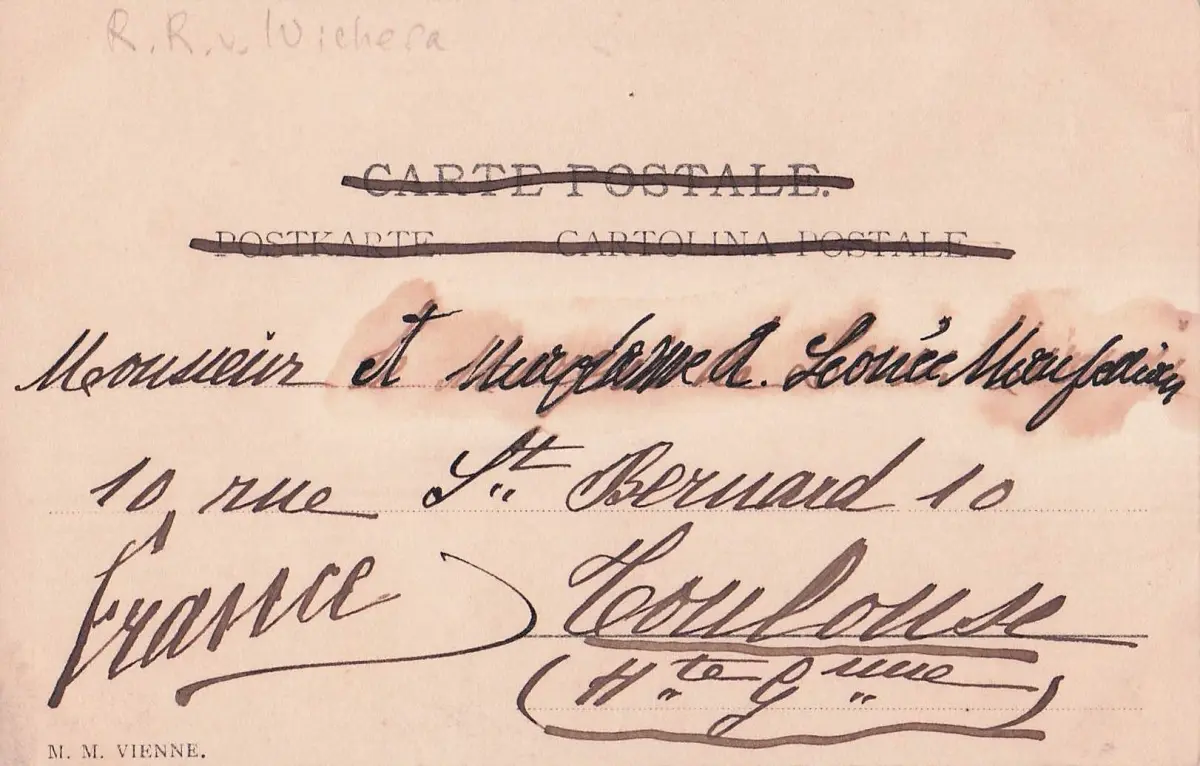 R. R. v. Wichera
CARTE POSTALE.
POSTKARTE CARTOLINA POSTALE
Monsieur et Madame A. Léonce
10 rue St Bernard 10
France Toulouse
(Hte Gnne)
M. M. VIENNE.